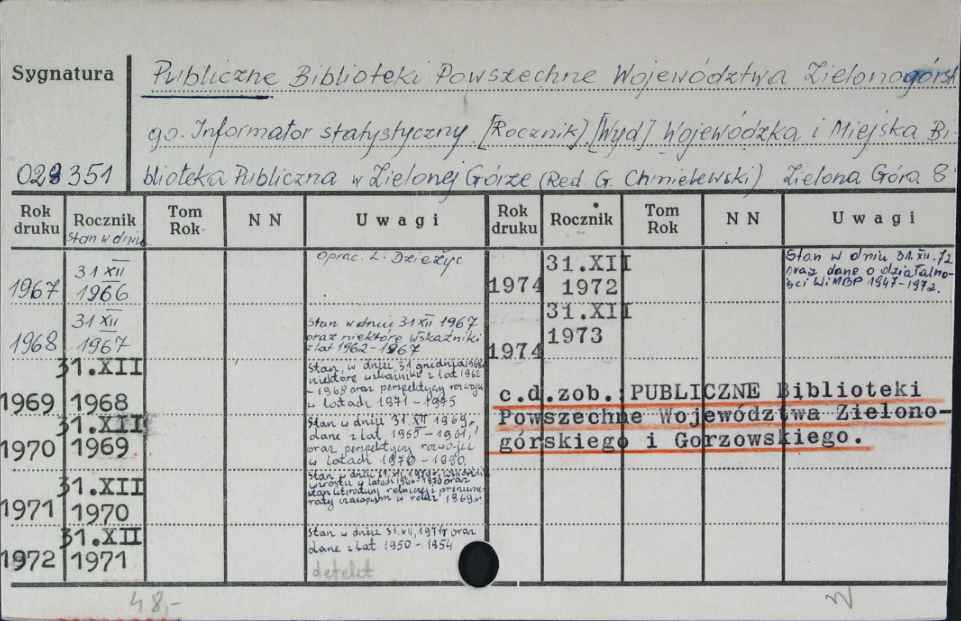 Sygnatura
Publiczne Biblioteki Powszechne Województwa Zielonogórsk
go. Informator statystyczny. [Rocznik]. [Wyd] Wojewódzka i Miejska Bi-
028351
blioteka Publiczna w Zielonej Górze (Red. G. Chmielewski) Zielona Góra 8°
Rok druku
Rocznik
Stan w dniu
Tom Rok
N N
Uwagi
Rok druku
Rocznik
Tom Rok
N N
Uwagi
1967
31 XII
1966
Oprac. L. Dzieżyc
1968
31 XII
1967
Stan w dniu 31 XII 1967
oraz niektóre wskaźniki
z lat 1962-1967
1969
31.XII
1968
Stan, w dniu 31 grudnia 1968
niektóre wskaźniki z lat 1962
-1968 oraz perspektywy rozwoju
w latach 1971-1975
1970
31.XII
1969
Stan w dniu 31 XII 1969,
dane z lat
oraz perspektywy rozwoju
w latach 1970-1980.
1971
31.XII
1970
Stan w dniu
wzrostu w latach oraz
stan literatury rolniczej i prenume-
raty czasopism w roku 1969.
1972
31.XII
1971
Stan w dniu 31.XII.1971r oraz
dane z lat 1950-1954
defekt
1974
31.XII
1972
Stan w dniu 31.XII.72
oraz dane o działalno-
ści WiMBP 1947-1972.
1974
31.XII
1973
c.d.zob.: PUBLICZNE Biblioteki
Powszechne Województwa Zielono-
górskiego i Gorzowskiego.
48,-